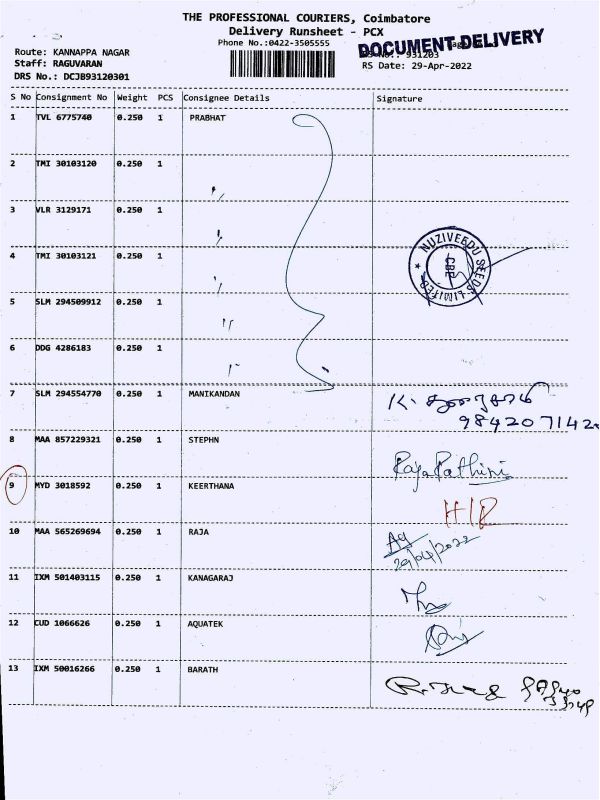 THE PROFESSIONAL COURIERS, Coimbatore
Delivery Runsheet - PCX
Phone No.:0422-3505555
DOCUMENT DELIVERY
Route: KANNAPPA NAGAR
931203
Staff: RAGUVARAN
RS Date: 29-Apr-2022
DRS No.: DCJB93120301
S No Consignment No Weight PCS Consignee Details Signature
1 TVL 6775740 0.250 1 PRABHAT
2 TMI 30103120 0.250 1 "
3 VLR 3129171 0.250 1 "
4 TMI 30103121 0.250 1 "
NUZIVEEDU SEEDS LIMITED
CBE
5 SLM 294509912 0.250 1 "
6 DDG 4286183 0.250 1 "
7 SLM 294554770 0.250 1 MANIKANDAN K.
9842071420
8 MAA 857229321 0.250 1 STEPHN
9 MYD 3018592 0.250 1 KEERTHANA
10 MAA 565269694 0.250 1 RAJA
29/04/2022
11 IXM 501403115 0.250 1 KANAGARAJ
12 CUD 1066626 0.250 1 AQUATEK
13 IXM 50016266 0.250 1 BARATH